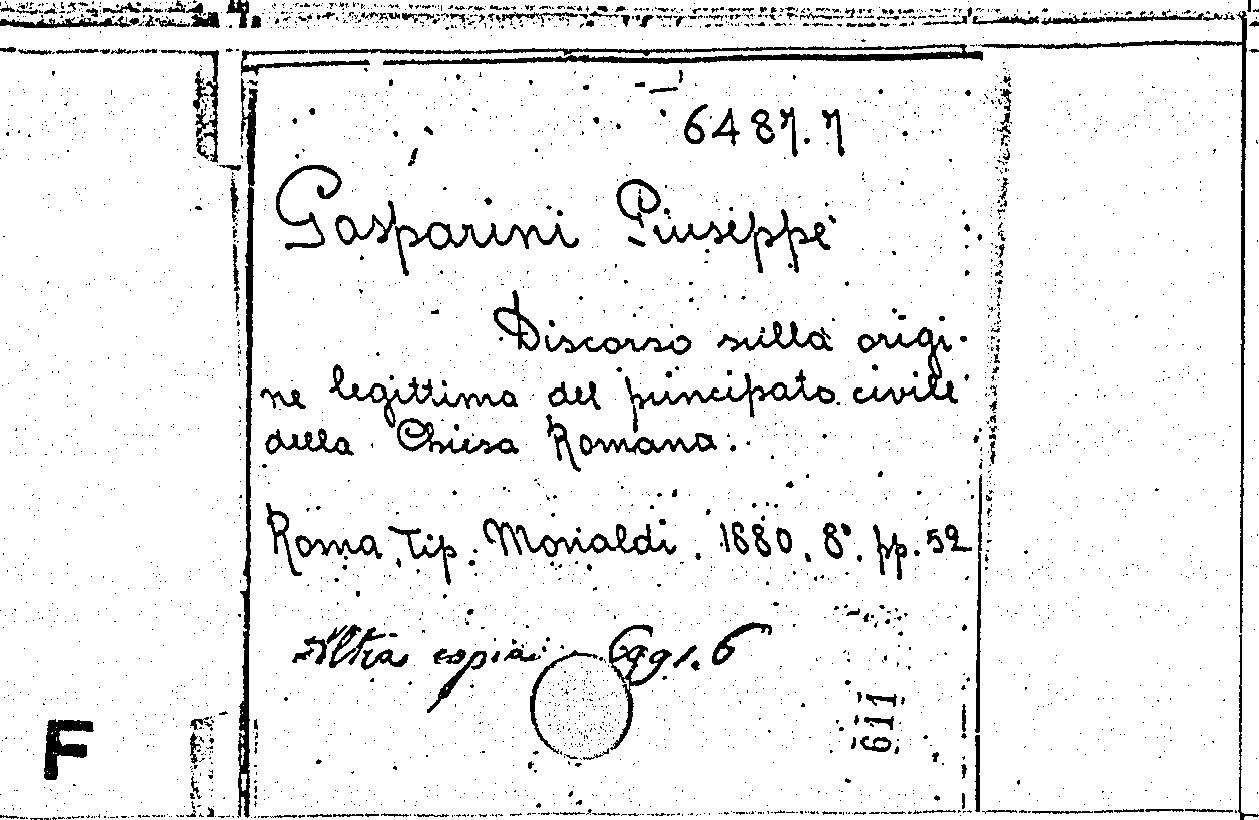 6487.7
Gasparini Giuseppe
Discorso sulla origi-
ne legittima del principato civile
della Chiesa Romana.
Roma, Tip. Monaldi, 1880, 8°. pp. 52
Altra copia 6991.6
611
F